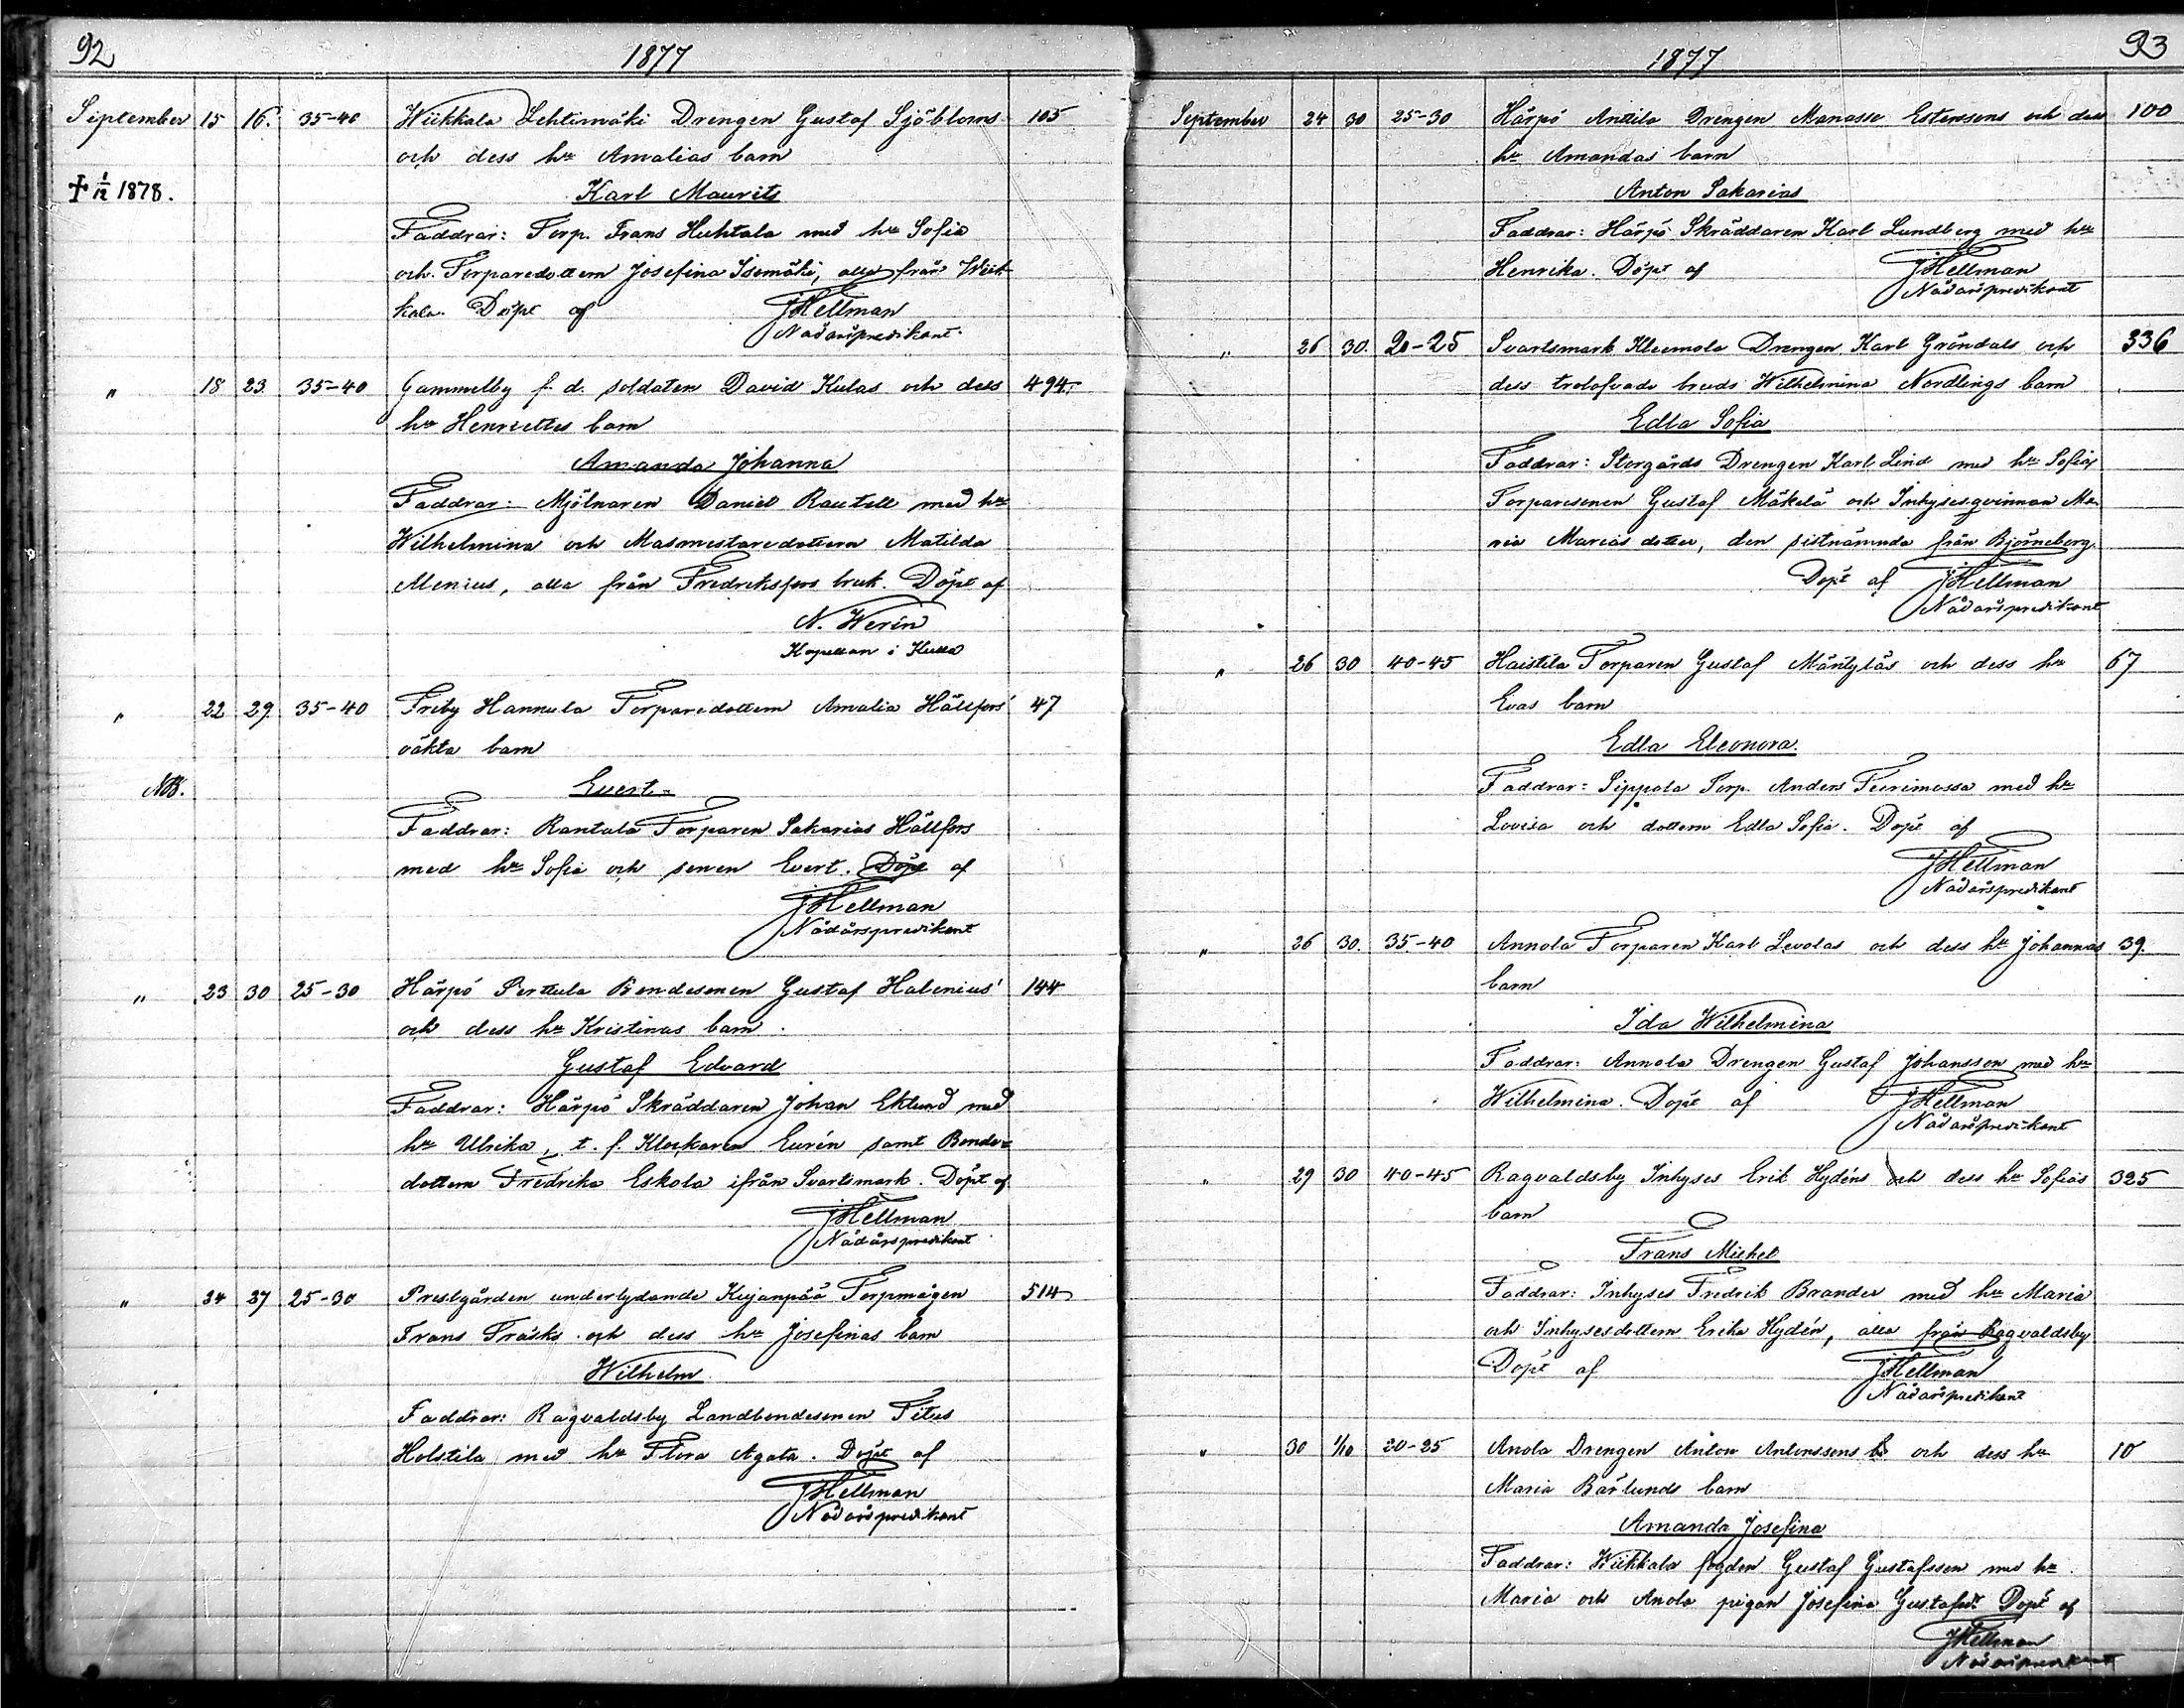 92
1877
September 15 16. 35-40 Wiikkala Lehtimäki Drengen Gustaf Sjöbloms 105
och dess hu Amalias barn
† 1/12 1878.
Karl Maurits
Faddrar: Torp. Frans Huhtala med hu Sofia
och Torparedottern Josefina Isomäki, alla från Wiik-
kala. Döpt af JHellman
Nådårspredikant
" 18 23 35-40 Gammelby f. d. soldaten David Kulas och dess 494
hu Henriettes barn
Amanda Johanna
Faddrar: Mjölnaren Daniel Rautell med hu
Wilhelmina och Masmestaredottern Matilda
Menius, alla från Fredriksfors bruk. Döpt af
N. Werin
Kapellan i Kulla
" 22 29 35-40 Friby Hannula Torparedottern Amalia Hällfors' 47
oäkta barn
NB.
Evert
Faddrar: Rantala Torparen Sakarias Hällfors
med hu Sofia och sonen Evert. Döpt af
JHellman
Nådårspredikant
" 23 30 25-30 Härpö Perttula Bondesonen Gustaf Halenius' 144
och dess hu Kristinas barn
Gustaf Edvard
Faddrar: Härpö Skräddaren Johan Eklund med
hu Ulrika, t. f. Klockaren Eurén samt Bonde-
dottern Fredrika Eskola ifrån Svartsmark. Döpt af
JHellman
Nådårspredikant
" 24 27 25-30 Prestgården underlydande Kujanpää Torpmågen 514
Frans Träsks och dess hu Josefinas barn
Wilhelm
Faddrar: Ragvaldsby Landbondesonen Titus
Holstila med hu Flora Agata. Döpt af
JHellman
Nådårspredikant
93
1877
September 24 30 25-30 Härpö Anttila Drengen Manasse Esterssons och dess 100
hu Amandas barn
Anton Sakarias
Faddrar: Härpö Skräddaren Karl Lundberg med hu
Henrika. Döpt af JHellman
Nådårspredikant
" 26 30. 20-25 Svartsmark Kleemola Drengen Karl Gröndals och 336
dess trolofvade bruds Wilhelmina Nordlings barn
Edla Sofia
Faddrar: Storgårds Drengen Karl Lind med hu Sofia,
Torparesonen Gustaf Mäkelä och Inhysesqvinnan Ma-
ria Mariasdotter, den sistnämnda från Björneborg.
Döpt af JHellman
Nådårspredikant
" 26 30 40-45 Haistila Torparen Gustaf Mäntyläs och dess hu 67
Evas barn
Edla Eleonora.
Faddrar: Sippola Torp. Anders Tuurimossa med hu
Lovisa och dottern Edla Sofia. Döpt af
JHellman
Nådårspredikant
" 26 30. 35-40 Annola Torparen Karl Levolas och dess hu Johannas 39.
barn
Ida Wilhelmina
Faddrar: Annola Drengen Gustaf Johansson med hu
Wilhelmina. Döpt af JHellman
Nådårspredikant
" 29 30 40-45 Ragvaldsby Inhyses Erik Hydéns och dess hu Sofias 325
barn
Frans Mickel
Faddrar: Inhyses Fredrik Brander med hu Maria
och Inhysesdottern Erika Hydén, alla från Ragvaldsby
Döpt af JHellman
Nådårspredikant
" 30 1/10 20-25 Anola Drengen Anton Antonssons och dess hu 10
Maria Bärlunds barn
Amanda Josefina
Faddrar: Wiikkala fogden Gustaf Gustafsson med hu
Maria och Anola pigan Josefina Gustafsdr. Döpt af
JHellman
Nådårspredikant